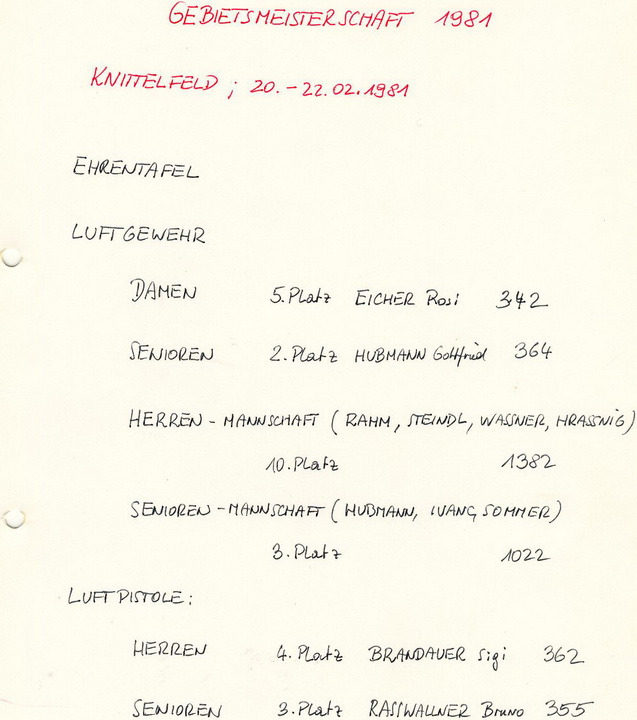 GEBIETSMEISTERSCHAFT 1981
KNITTELFELD ; 20.-22.02.1981
EHRENTAFEL
LUFTGEWEHR
DAMEN 5.Platz EICHER Rosi 342
SENIOREN 2.Platz HUBMANN Gottfried 364
HERREN-MANNSCHAFT (RAHM, STEINDL, WASSNER, HRASSNIG)
10.Platz 1382
SENIOREN-MANNSCHAFT (HUBMANN, IVANG, SOMMER)
3.Platz 1022
LUFTPISTOLE:
HERREN 4.Platz BRANDAUER Sigi 362
SENIOREN 3.Platz RASSWALLNER Bruno 355